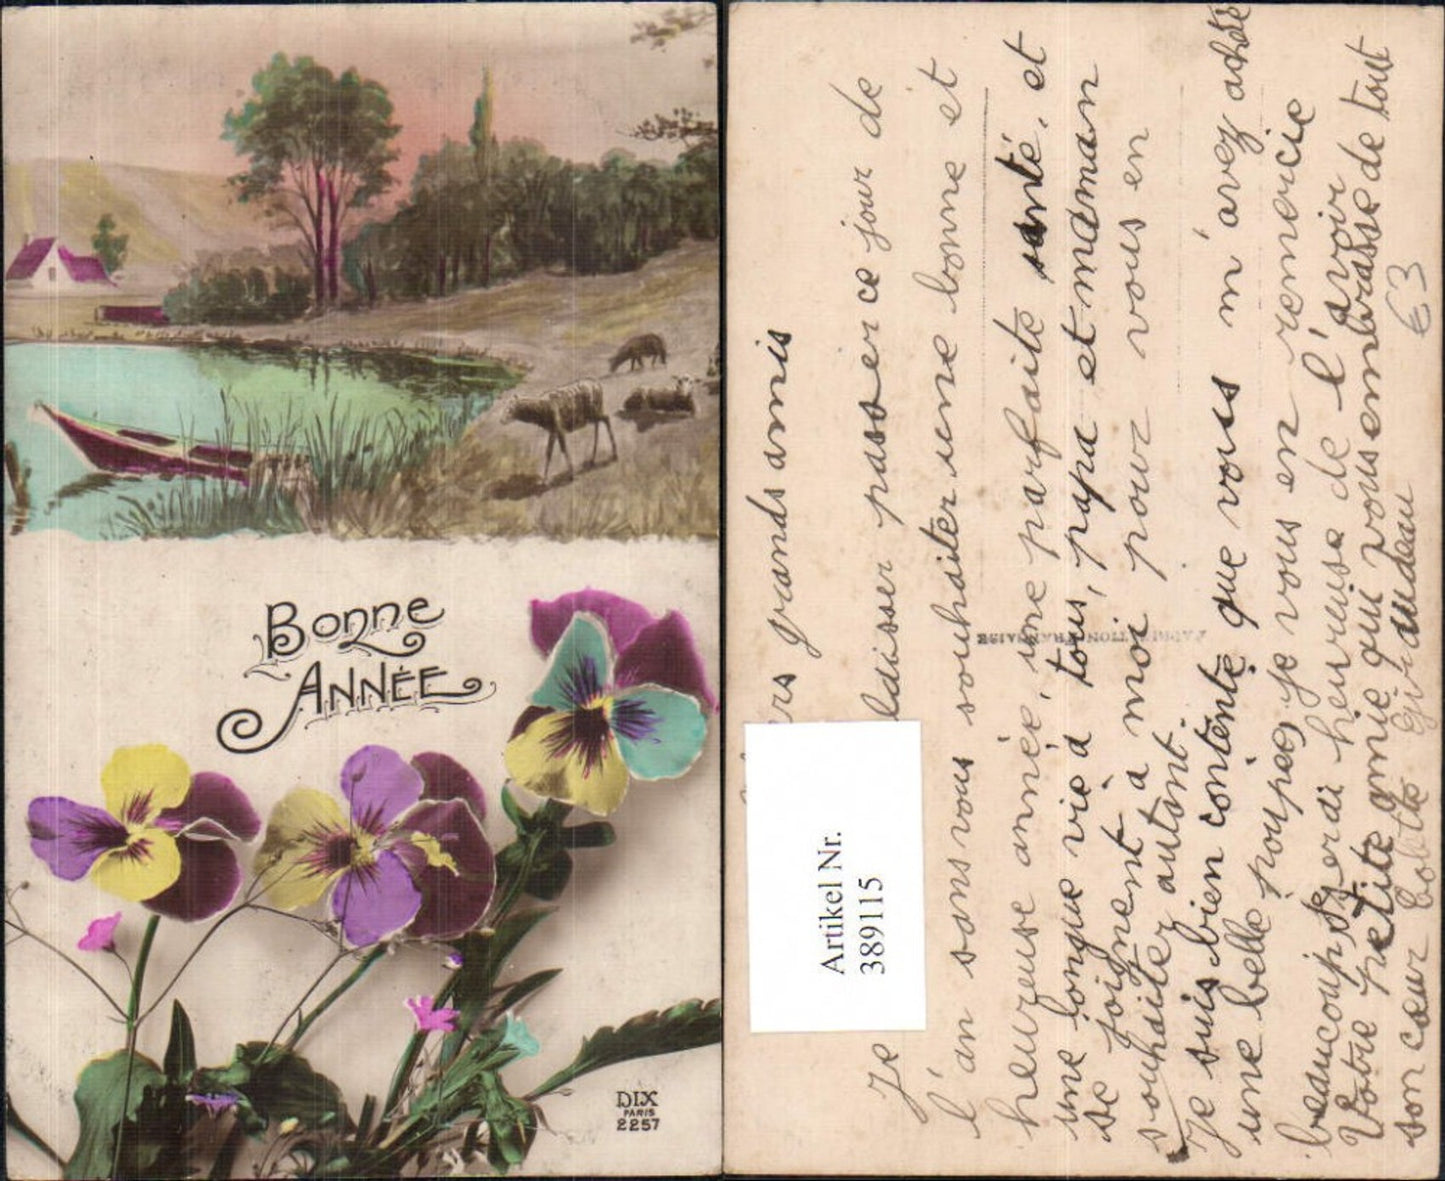 Bonne
Année
DIX
PARIS
2257
Artikel Nr.
389115
ers grands amis
Je laisser passer ce jour de
l'an sans vous souhaiter une bonne et
heureuse année, une parfaite santé, et
une longue vie à tous, papa et maman
se joignent à moi pour vous en
souhaiter autant
Je suis bien contente que vous m'avez acheté
une belle poupée, je vous en remercie
beaucoup je serai heureuse de l'avoir
Votre petite amie qui vous embrasse de tout
son cœur
€3
FABRICATION FRANÇAISE